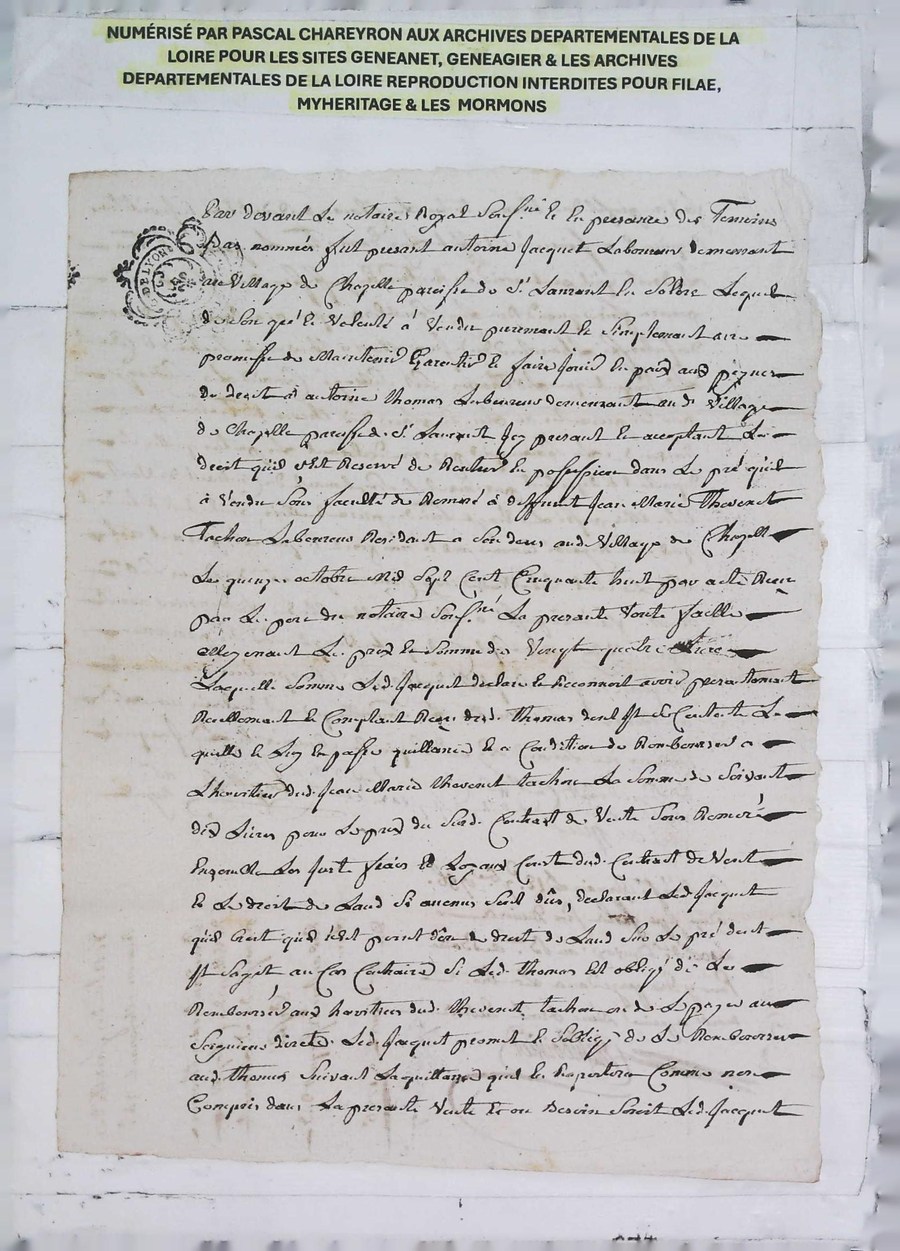 NUMÉRISÉ PAR PASCAL CHAREYRON AUX ARCHIVES DEPARTEMENTALES DE LA
LOIRE POUR LES SITES GENEANET, GENEAGIER & LES ARCHIVES
DEPARTEMENTALES DE LA LOIRE REPRODUCTION INTERDITES POUR FILAE,
MYHERITAGE & LES MORMONS
Par devant Le notaire Royal Sousné et En presance des Temoins
Bas nommés fut presant antoine Jacquet Laboureur demeurant
au Village de Chazelle paroisse de St Laurant En Solore Lequel
de Son gré et Volonté à Vendu purement et Simplement avec
promesse de Maintenir Garentir et faire Jouir En paix aux
De droit à antoine thomas Laboureur demeurant aud Village
de Chazelle paroisse de St Laurant Icy presant et acceptant Le
droit quil s'Est Reservé de Rentrer En possession dans Le pré quil
à Vendu Sous faculté de Remeré à deffunt Jean Marie Thevenet
Tachon Laboureur Residant a Son deces aud Village de Chazelle
Le quinze octobre Mil Sept Cent Cinquante huit par acte Reçu
par Le pere du notaire Sousné La presante Vente faitte
Moyenant Le prix et Somme de Vingt quatre Livre
Laquelle Somme Led. Jacquet declare et Reconnoit avoir presantement
Reellement et Comptant Reçu dud. Thomas dont Il Est Contente La
quitte et Luy En passe quittance et a Condition de Rembourser a
Lheritier dud. Jean Marie thevenet tachon La Somme de Soixante
dix Livres pour Le prix du Sud. Contract de Vente Sous Remeré
Ensemble Les Justes fraix Et Loyaux Couts dud. Contract de Vente
Et Le droit de Laud Si aucuns Sont dûs, declarant Led. Jacquet
quil Croit quil n'est point dû de droit de Laud Sur Le pré dont
Il Sagit au Cas Contraire Si Led. thomas Est obligé de Le
Rembourser aux heritiers dud. thevenet tachon ou de Le payer au
Seigneur directe Led. Jacquet promet et Soblige de Le Rembourser
aud. thomas Suivant La quittance quil En Raportera Comme non
Compris dans La presante Vente Et ou Besoin Seroit Led. Jacquet